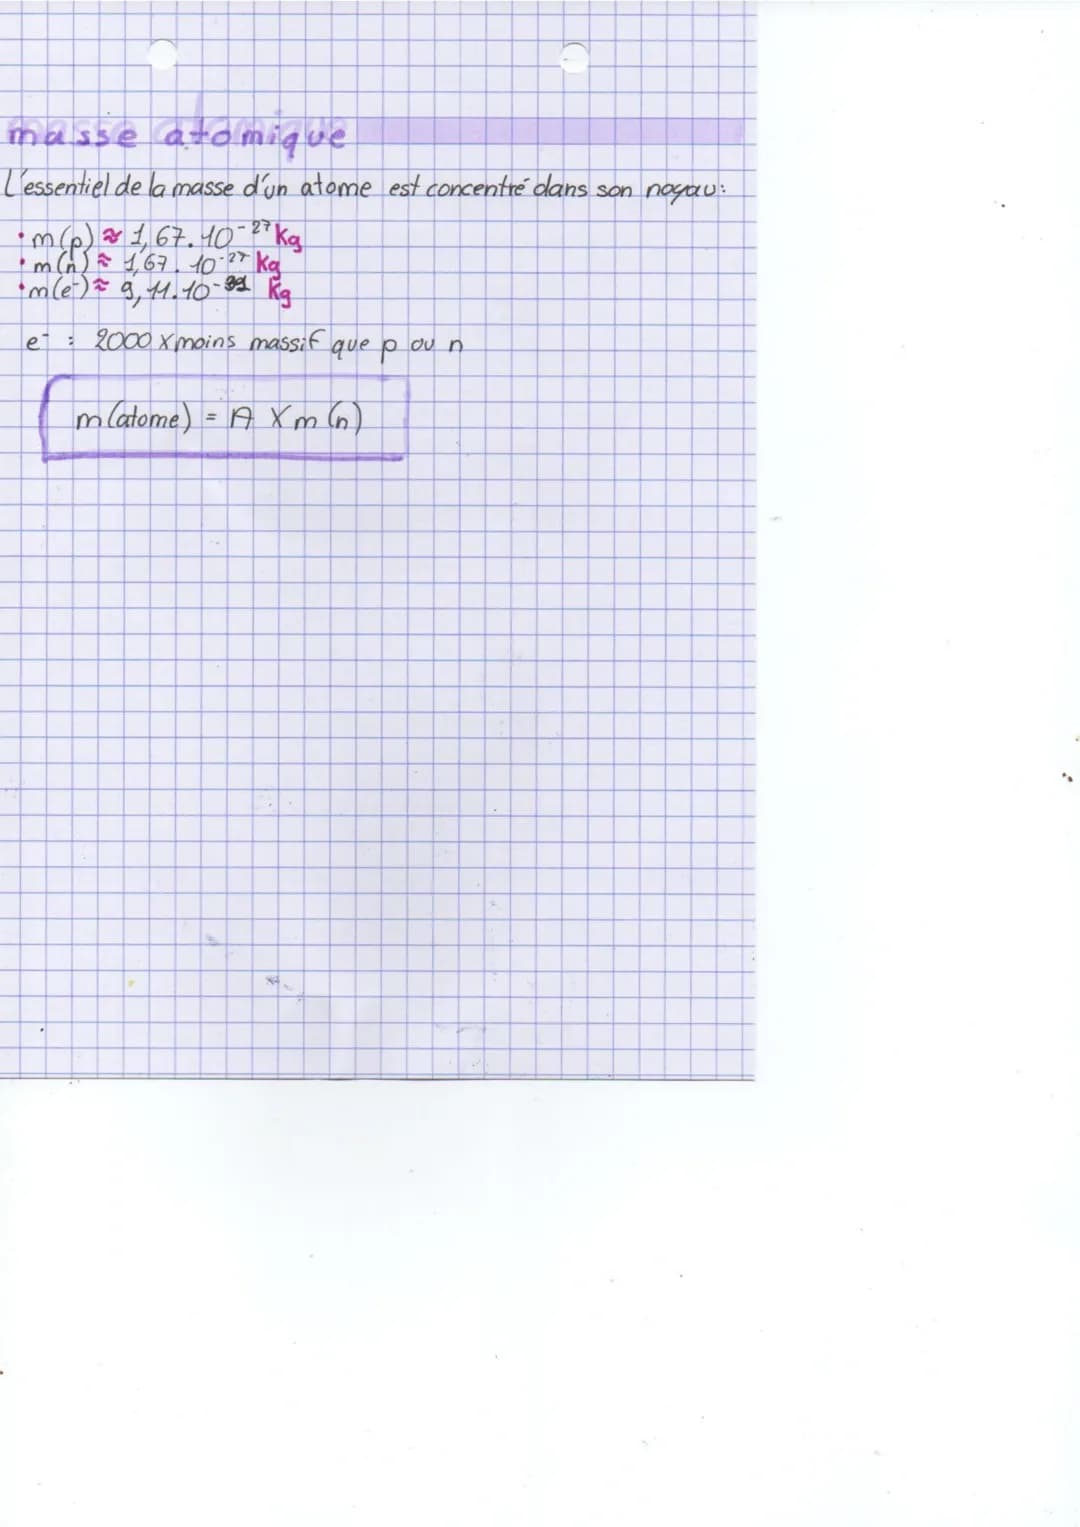 masse atomique
L'essentiel de la masse d'un atome est concentré dans son noyau:
• m(p) ≈ 1,67.10⁻²⁷ Kg
• m(n) ≈ 1,67.10⁻²⁷ Kg
• m(e⁻) ≈ 9,11.10⁻³¹ Kg
e⁻ : 2000 x moins massif que p ou n
m(atome) = A X m(n)